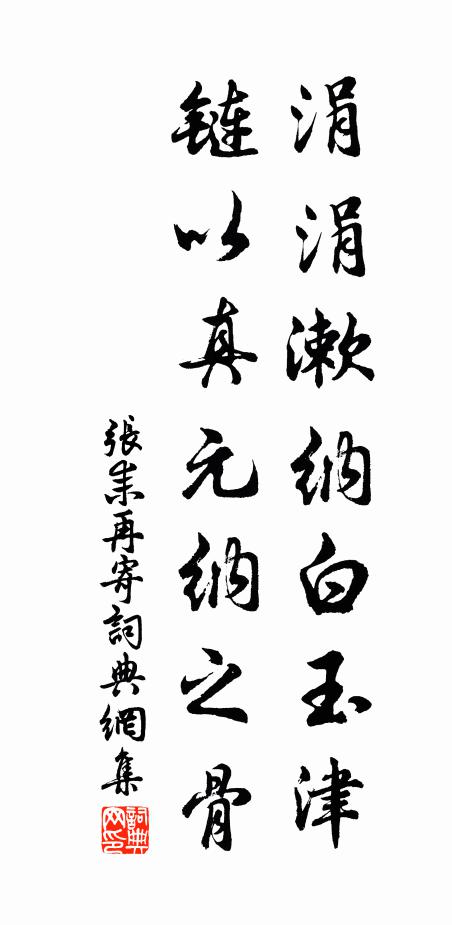 涓涓漱納白玉津
鏈以真元納之骨
張耒再寄詞典網集
詞典
网印